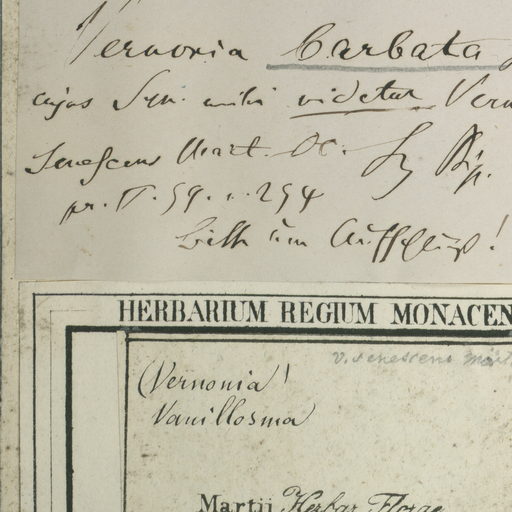 Vernonia barbata
cujus Syn. mihi videtur Vern
senescens Mart. DC.
pr. V. 59. n. 254
Bitte um Aufschluß!
HERBARIUM REGIUM MONACEN
V. senescens Mart
(Vernonia!
Vanillosma
Martii Herbar. Florae